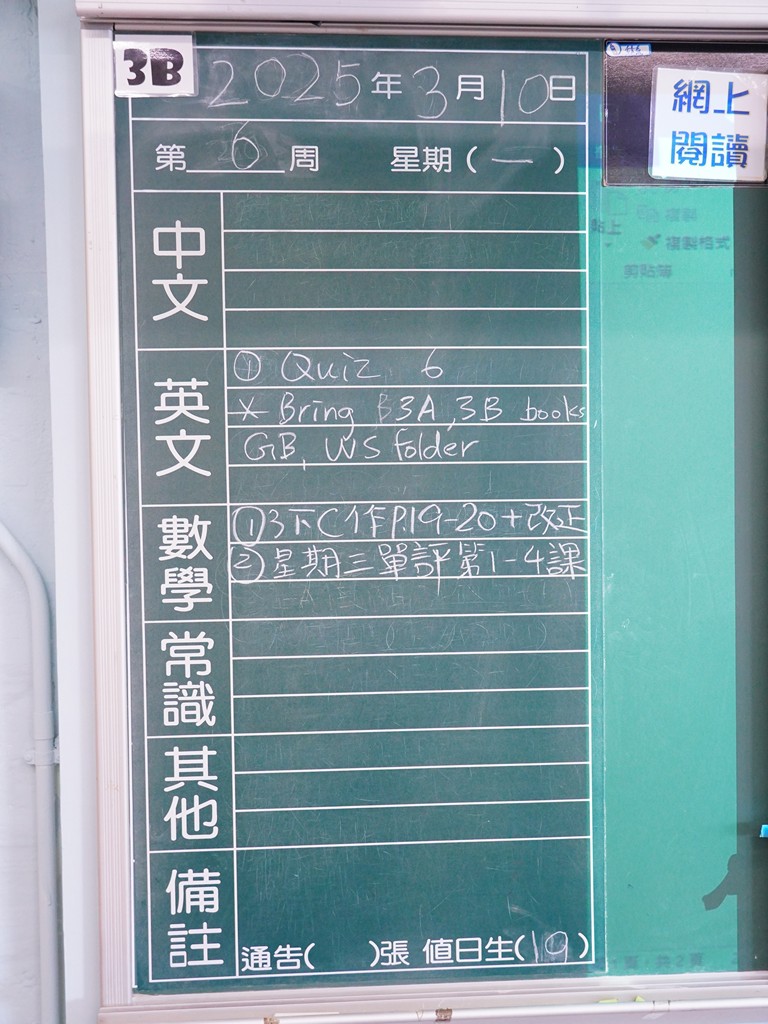 3B
2025年3月10日
網上
閱讀
第 6 周 星期(一)
中文
英文
① Quiz 6
* Bring 3A, 3B books,
GB, WS folder
數學
①3下C作P.19-20+改正
②星期三單評第1-4課
常識
其他
備註
通告( )張 值日生(19)
貼上
複製
複製格式
剪貼簿